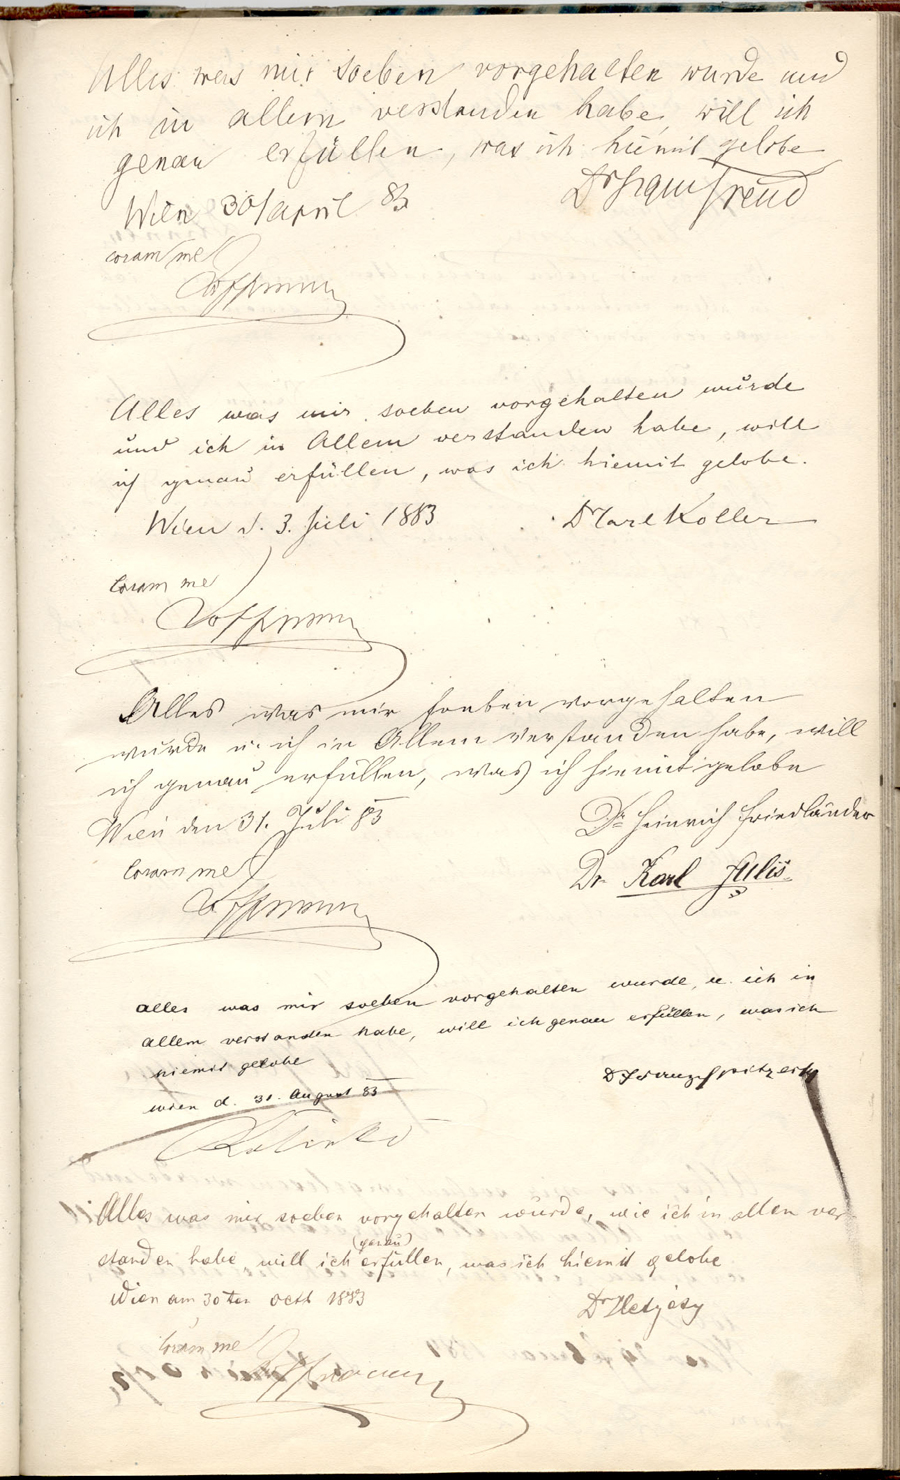 Alles was mir soeben vorgehalten wurde und
ich in allem verstanden habe, will ich
genau erfüllen, was ich hiemit gelobe
Wien 30/April 83
Dr Sigm Freud
coram me
Alles was mir soeben vorgehalten wurde
und ich in Allem verstanden habe, will
ich genau erfüllen, was ich hiemit gelobe.
Wien d. 3. Juli 1883
Dr Carl Koller
Coram me
Alles was mir soeben vorgehalten
wurde u. ich in Allem verstanden habe, will
ich genau erfüllen, was ich hiemit gelobe
Wien den 31. Juli 83
Dr Heinrich Friedländer
Coram me
Dr Karl
alles was mir soeben vorgehalten wurde, u. ich in
allem verstanden habe, will ich genau erfüllen, was ich
hiemit gelobe
Wien d. 31. August 83
Dr Franz
Alles was mir soeben vorgehalten wurde, wie ich in allen ver
standen habe, will ich (genau) erfüllen, was ich hiemit gelobe
Wien am 30ten Octb 1883
Dr
Coram me